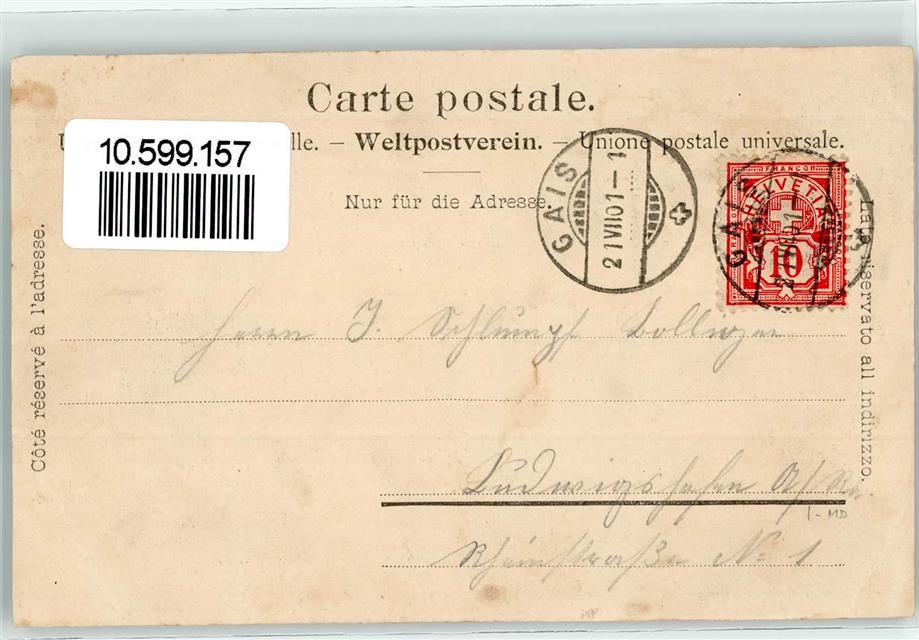 Carte postale.
10.599.157
lle. – Weltpostverein. – Unione postale universale.
Nur für die Adresse.
GAIS
21 VII 01 – 1
FRANCO
HELVETIA
10
GAIS
Côté réservé à l'adresse.
Lato riservato all indirizzo.
Herrn J. Schlumpf Bollinger
Ludwigshafen A/Rh.
1-MD
Rheinstraße No 1